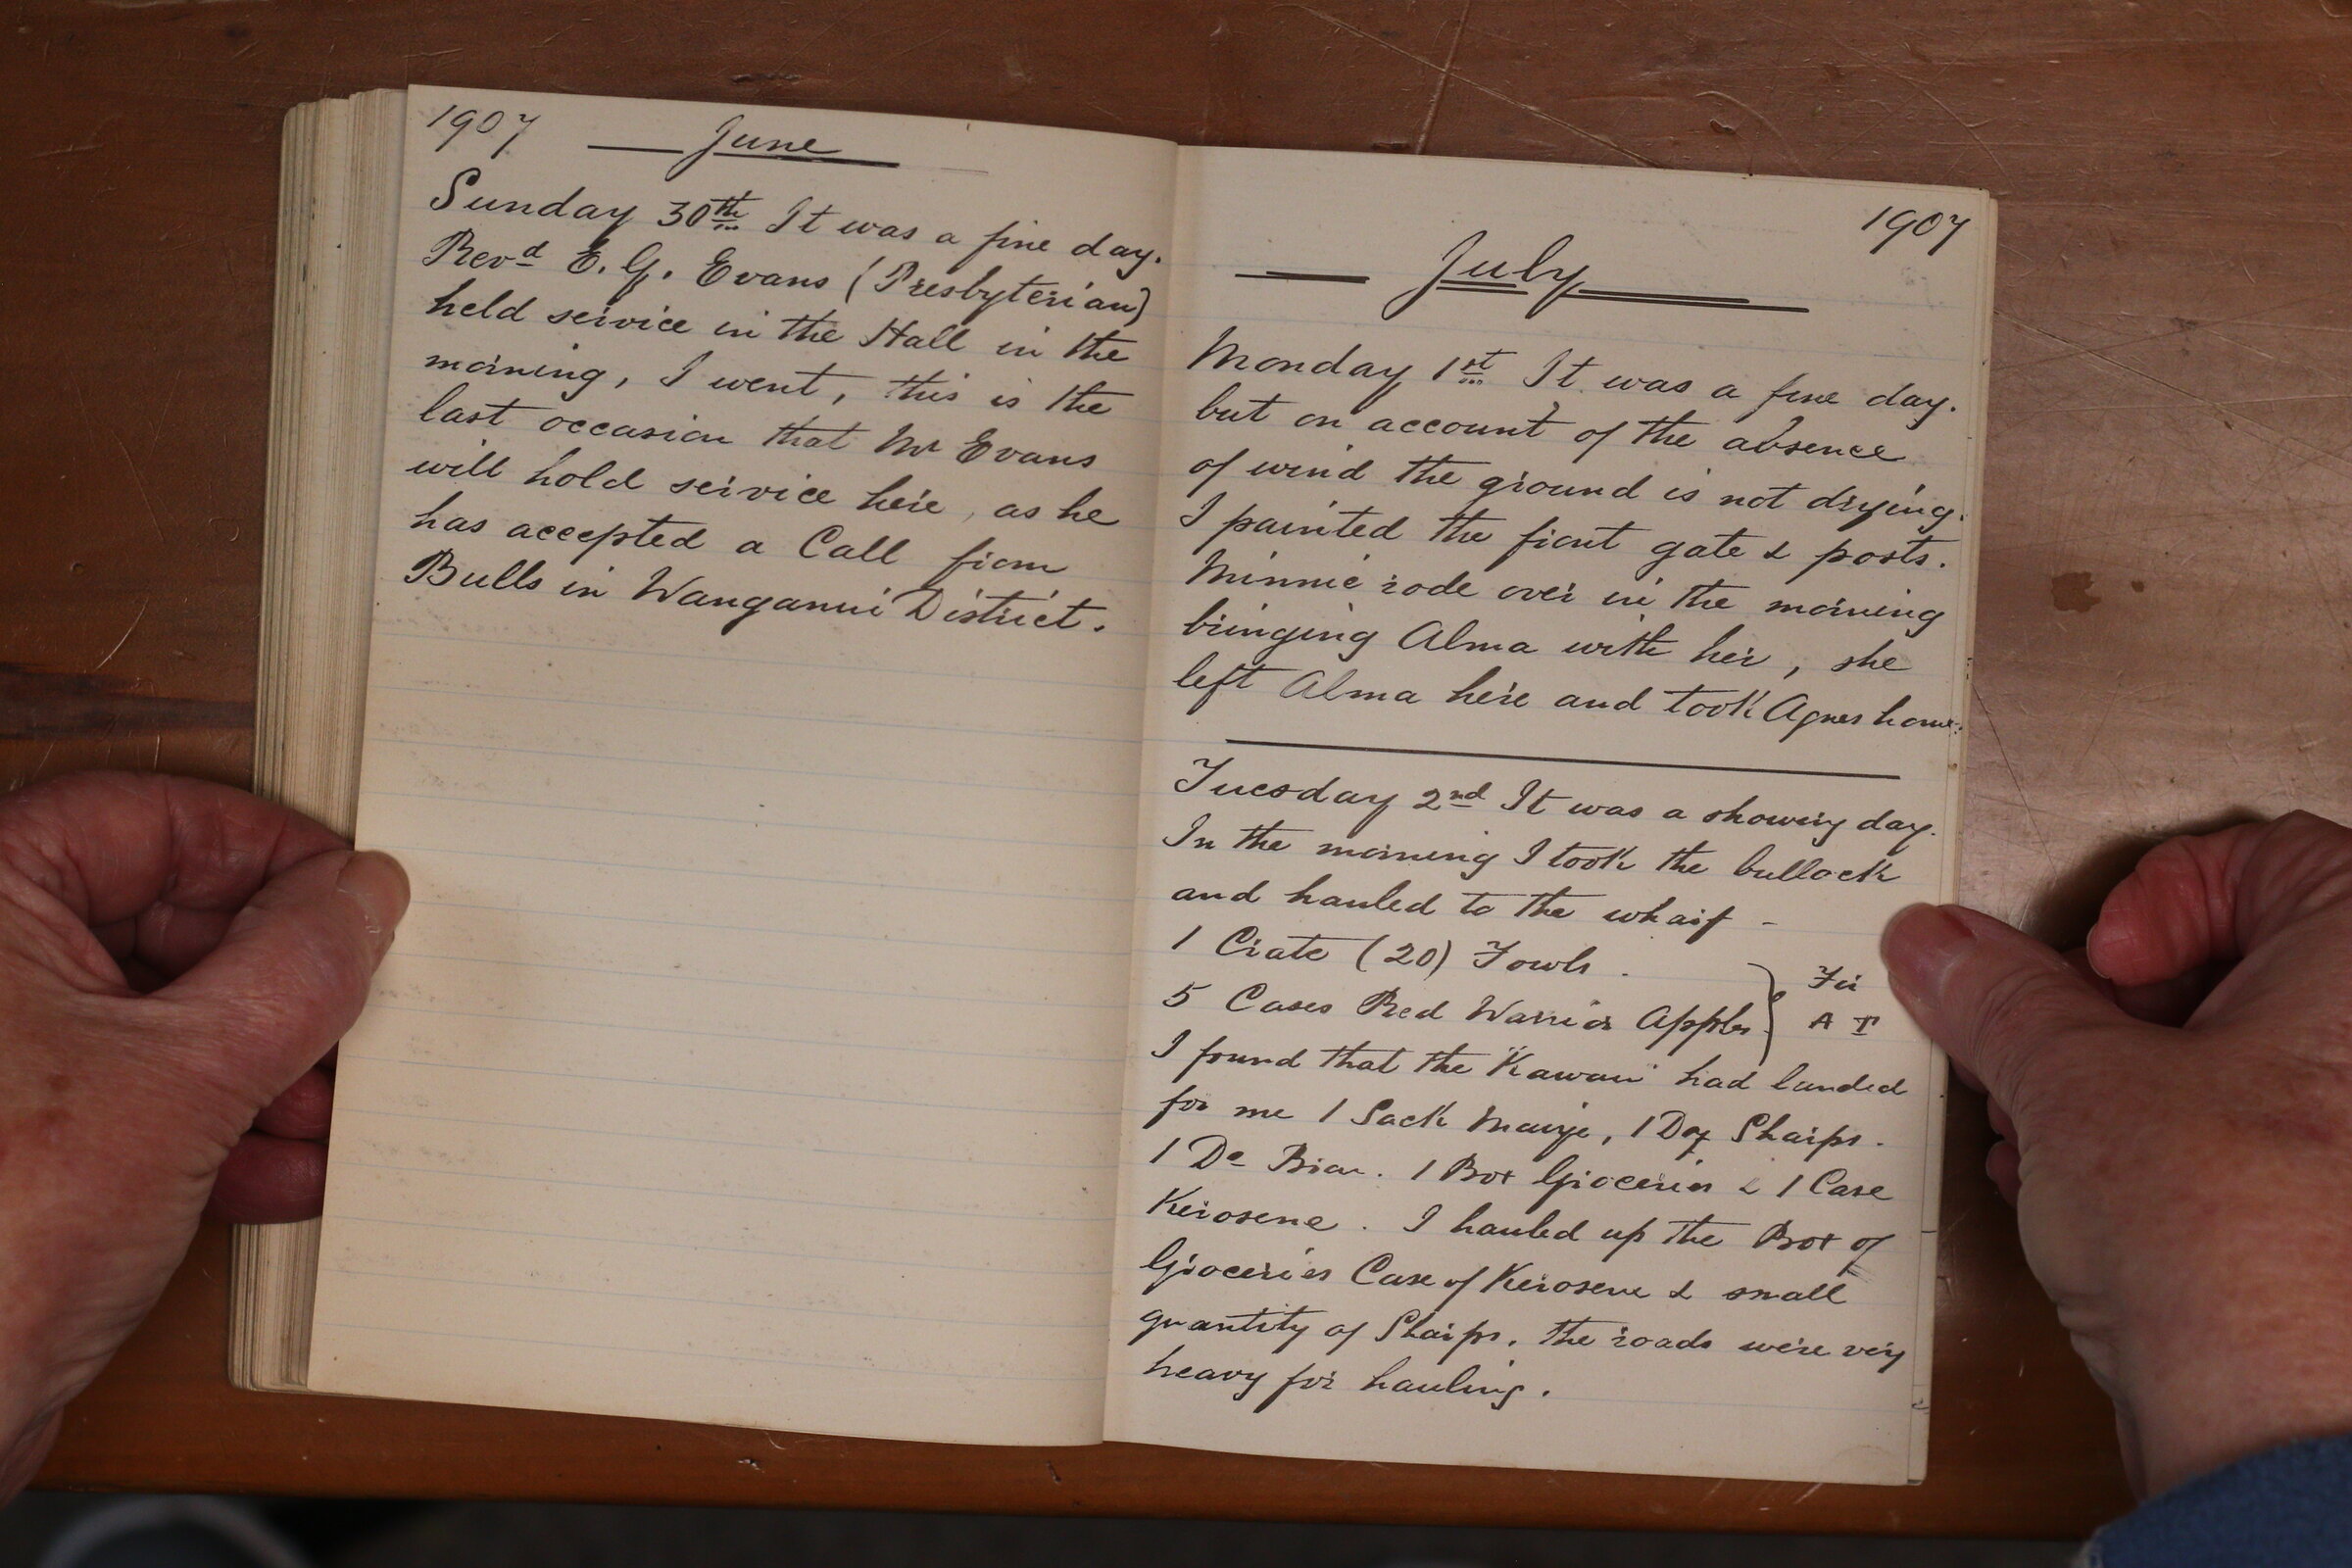 1907 June
Sunday 30th It was a fine day.
Revd E. G. Evans (Presbyterian)
held service in the Hall in the
morning, I went, this is the
last occasion that Mr Evans
will hold service here, as he
has accepted a Call from
Bulls in Wanganui District.
1907
July
Monday 1st It was a fine day.
but on account of the absence
of wind the ground is not drying.
I painted the front gate & posts.
Minnie rode over in the morning
bringing Alma with her, she
left Alma here and took Agnes home.
Tuesday 2nd It was a showery day.
In the morning I took the bullock
and hauled to the wharf -
1 Crate (20) Fowls.
5 Cases Red Warrior Apples
A T
I found that the "Kawau" had landed
for me 1 Sack Maize, 1 Do Sharps.
1 Do Bran. 1 Box Groceries & 1 Case
Kerosene. I hauled up the Box of
Groceries Case of Kerosene & small
quantity of Sharps. The roads were very
heavy for hauling.